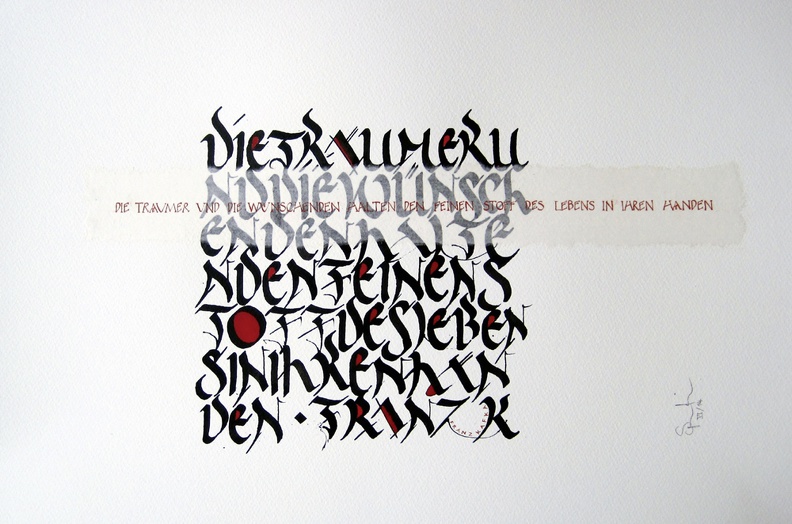 DIETRAUMERU
NDDIEWÜNSCH
DIE TRAUMER UND DIE WUNSCHENDEN HALTEN DEN FEINEN STOFF DES LEBENS IN IHREN HANDEN
ENDENHALTE
NDENFEINENS
TOFFDESLEBEN
SINIHRENHÄN
DEN · FRANZ K
FRANZ KAFKA